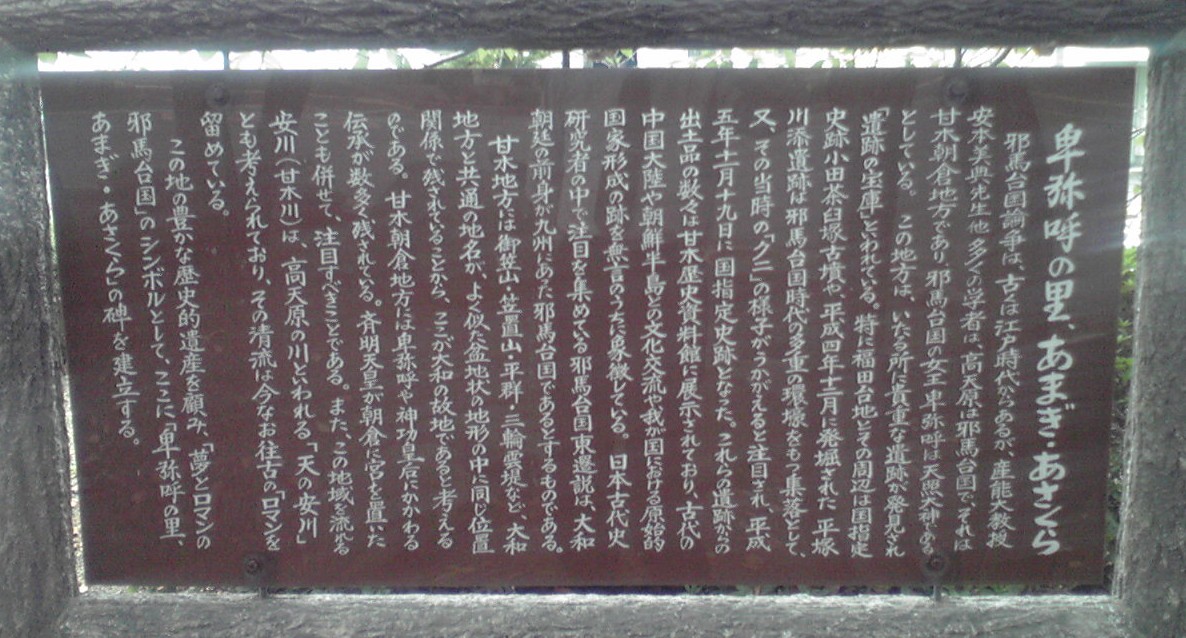 卑弥呼の里、あまぎ・あさくら
邪馬台国論争は、古くは江戸時代からあるが、産能大教授
安本美典先生他多くの学者は、高天原は邪馬台国で、それは
甘木朝倉地方であり、邪馬台国の女王・卑弥呼は天照大神である
としている。この地方は、いたる所に貴重な遺跡が発見され
「遺跡の宝庫」といわれている。特に福田台地とその周辺は国指定
史跡小田茶臼塚古墳や、平成四年十二月に発掘された平塚
川添遺跡は邪馬台国時代の多重の環壕をもつ集落として、
又、その当時の「クニ」の様子がうかがえると注目され、平成
五年十二月十九日に国指定史跡となった。これらの遺跡からの
出土品の数々は甘木歴史資料館に展示されており、古代の
中国大陸や朝鮮半島との文化交流や我が国における原始的
国家形成の跡を無言のうちに象徴している。日本古代史
研究者の中で注目を集めている邪馬台国東遷説は、大和
朝廷の前身が九州にあった邪馬台国であるとするものである。
甘木地方には御笠山・笠置山・平群・三輪・雲堤など、大和
地方と共通の地名が、よく似た盆地状の地形の中に同じ位置
関係で残されていることから、ここが大和の故地であると考える
のである。甘木朝倉地方には卑弥呼や神功皇后にかかわる
伝承が数多く残されている。斉明天皇が朝倉に宮を置いた
ことも併せて、注目すべきことである。また、この地域を流れる
安川(甘木川)は、高天原の川といわれる「天の安川」
とも考えられており、その清流は今なお往古の「ロマンを
留めている。
この地の豊かな歴史的遺産を顧み、「夢とロマンの
邪馬台国」のシンボルとして、ここに「卑弥呼の里、
あまぎ・あさくら」の碑を建立する。